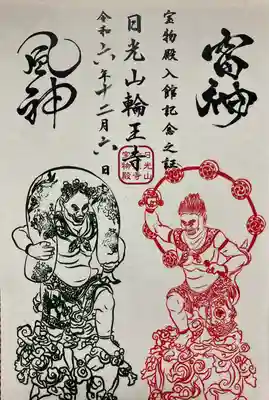 雷神
宝物殿入館記念之証
日光山輪王寺
令和六年十二月六日
風神
日光山
輪王寺
宝物殿